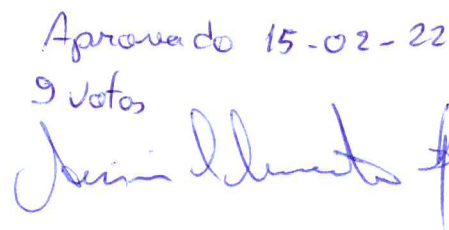 Aprovado 15-02-22
9 votos